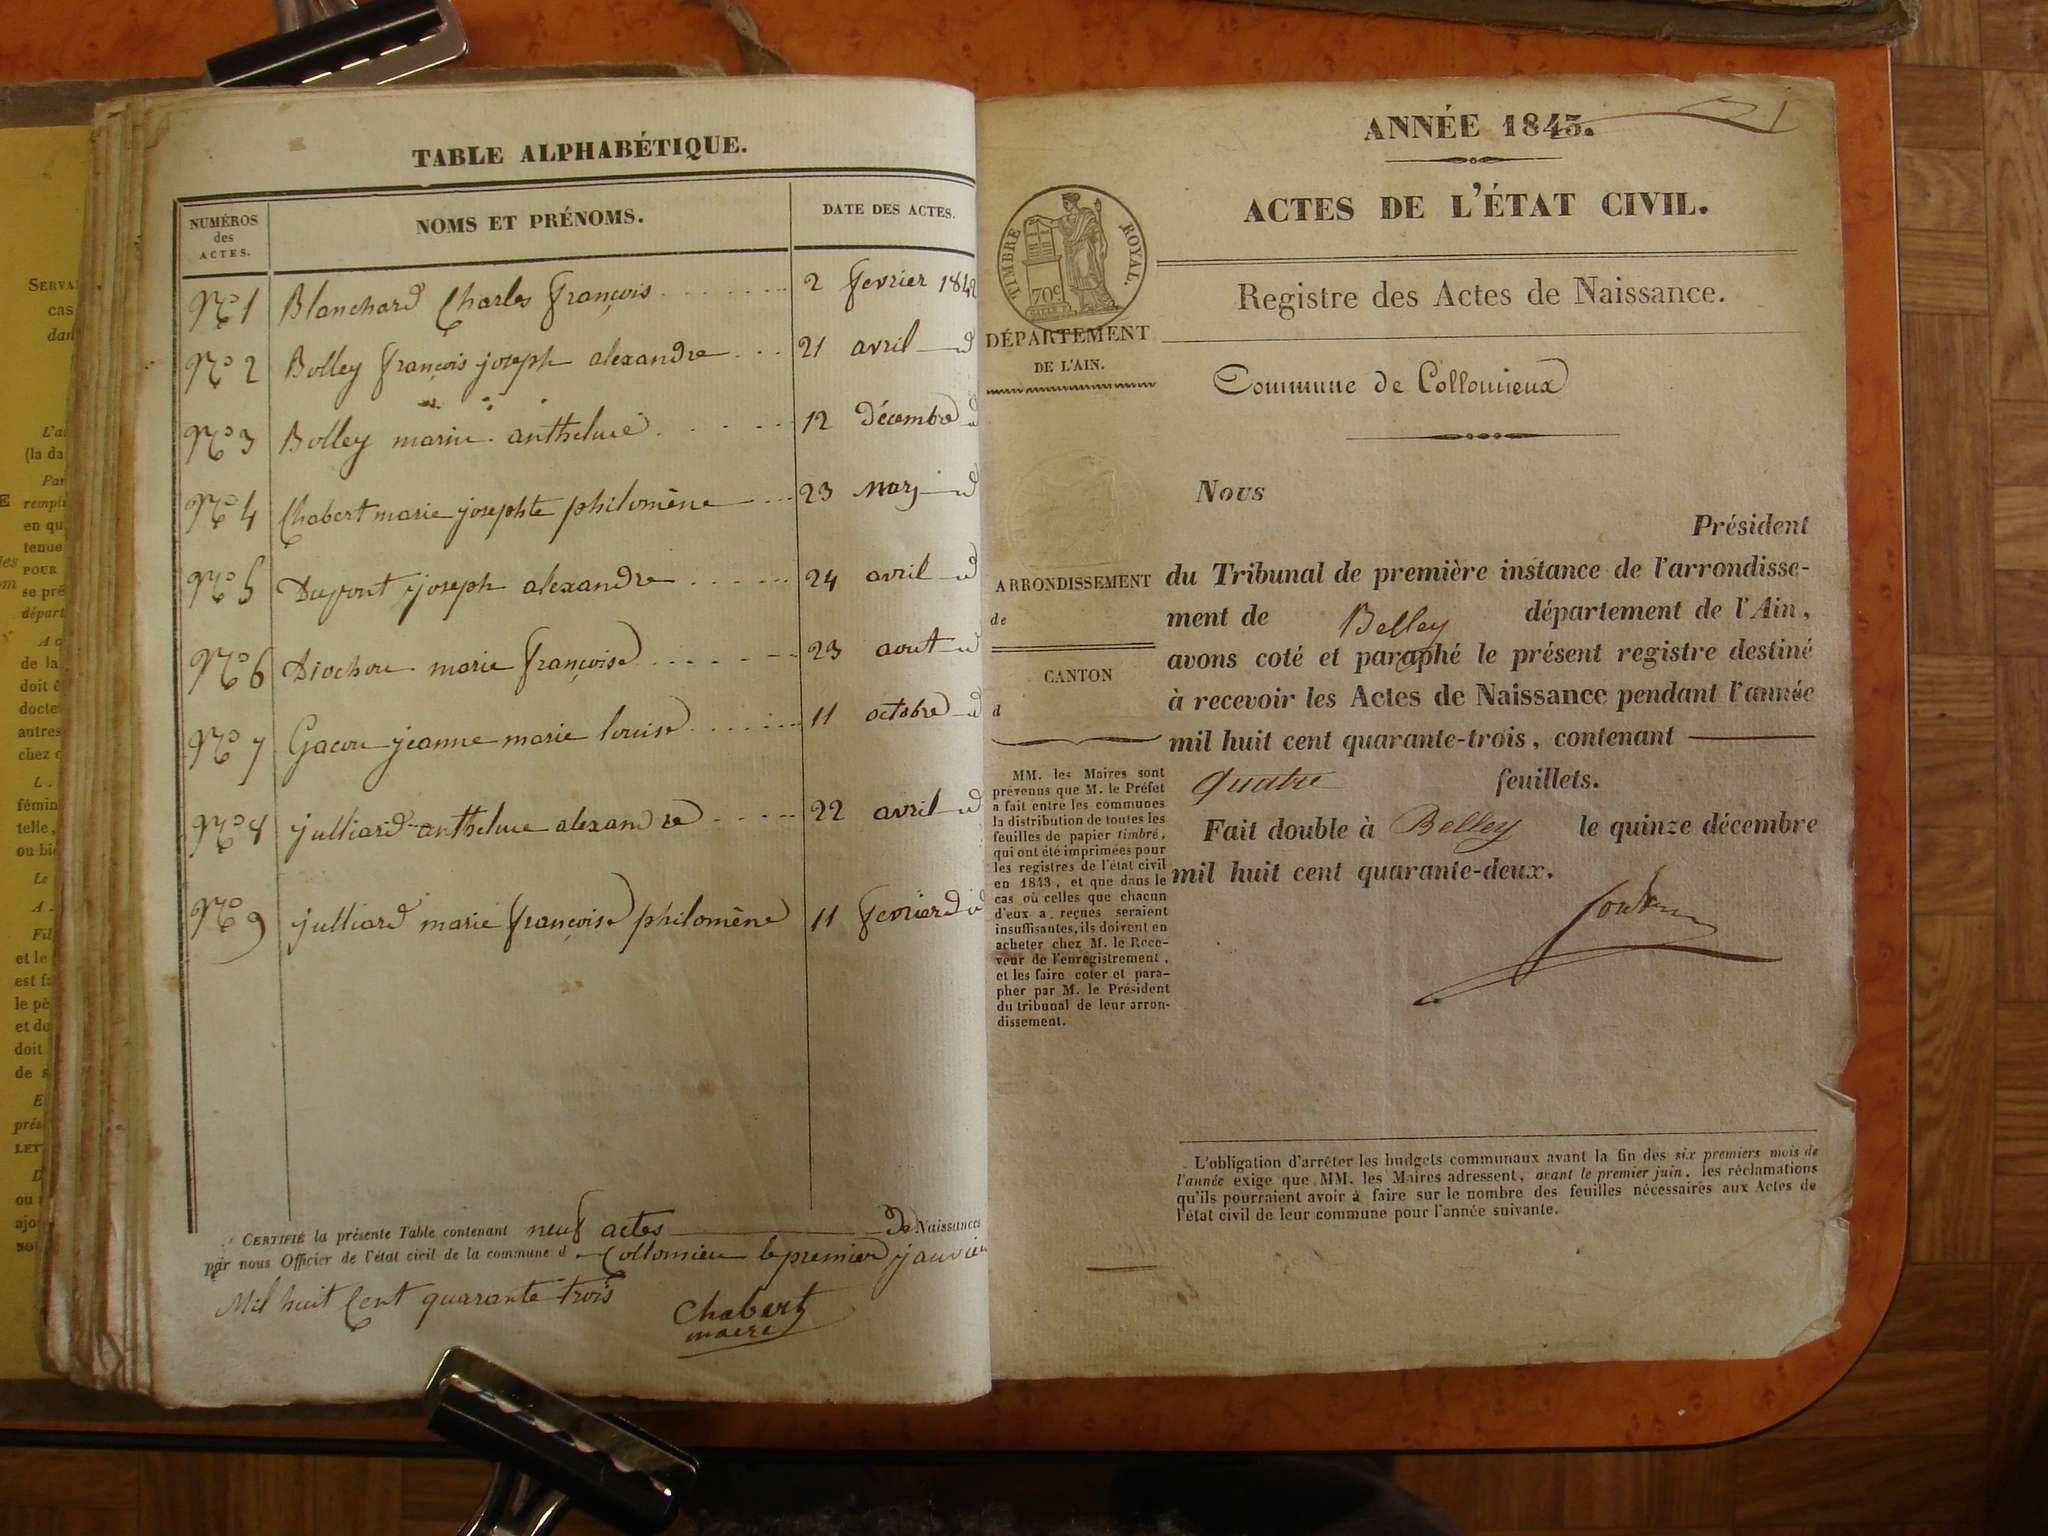 TABLE ALPHABÉTIQUE.
NUMÉROS des ACTES.
NOMS ET PRÉNOMS.
DATE DES ACTES.
No 1 Blanchard Charles françois 2 fevrier 1842
No 2 Bolley françois joseph alexandre 21 avril id
No 3 Bolley marie anthelmie 12 décembre id
No 4 Chabert marie josephte philomène 23 mars id
No 5 Dupont joseph alexandre 24 avril id
No 6 marie françoise 23 aout id
No 7 Gacon jeanne marie louise 11 octobre id
No 8 julliard anthelme alexandre 22 avril id
No 9 julliard marie françoise philomène 11 fevrier id
CERTIFIÉ la présente Table contenant neuf actes de Naissances
par nous Officier de l'état civil de la commune d Collomieu le premier janvier
Mil huit Cent quarante trois
Chabert
maire
ANNÉE 1843.
ACTES DE L'ÉTAT CIVIL.
TIMBRE ROYAL.
70c
Registre des Actes de Naissance.
DÉPARTEMENT
DE L'AIN.
Commune de Collomieux
ARRONDISSEMENT
de
CANTON
d
MM. les Maires sont
prévenus que M. le Préfet
a fait entre les communes
la distribution de toutes les
feuilles de papier timbré,
qui ont été imprimées pour
les registres de l'état civil
en 1843, et que dans le
cas où celles que chacun
d'eux a reçues seraient
insuffisantes, ils doivent en
acheter chez M. le Rece-
veur de l'enregistrement,
et les faire coter et para-
pher par M. le Président
du tribunal de leur arron-
dissement.
Nous
Président
du Tribunal de première instance de l'arrondisse-
ment de Belley département de l'Ain,
avons coté et paraphé le présent registre destiné
à recevoir les Actes de Naissance pendant l'année
mil huit cent quarante-trois, contenant
quatre feuillets.
Fait double à Belley le quinze décembre
mil huit cent quarante-deux.
L'obligation d'arrêter les budgets communaux avant la fin des six premiers mois de
l'année exige que MM. les Maires adressent, avant le premier juin, les réclamations
qu'ils pourraient avoir à faire sur le nombre des feuilles nécessaires aux Actes de
l'état civil de leur commune pour l'année suivante.